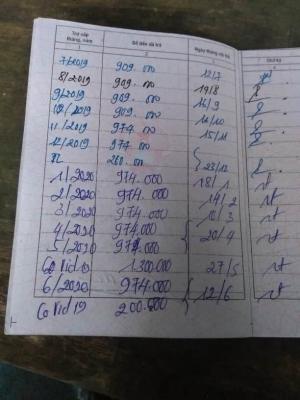 Trợ cấp tháng, năm Số tiền đã trả Ngày tháng trả
1 2
7/2019 909.000 12/7
8/2019 909.000 19/8
9/2019 909.000 16/9
10/2019 909.000 14/10
11/2019 974.000 15/11
12/2019 974.000
260.000 23/12
1/2020 974.000 18/1
2/2020 974.000 14/2
3/2020 974.000 18/3
4/2020 974.000 20/4
5/2020 974.000
Covid 19 1.300.000 27/5
6/2020 974.000 12/6
Covid 19 200.000